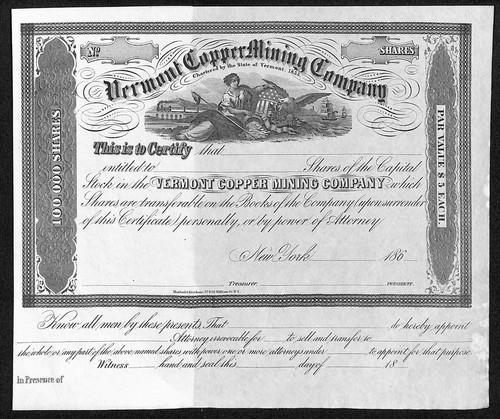 No
SHARES
Vermont Copper Mining Company
Chartered by the State of Vermont
100,000 SHARES
PAR VALUE $5 EACH.
This is to Certify that
entitled to Shares of the Capital
Stock in the VERMONT COPPER MINING COMPANY which
Shares are transferable on the Books of the Company (upon surrender
of this Certificate) personally, or by power of Attorney
New York 186
Treasurer. PRESIDENT.
Know all men by these presents, That do hereby appoint
Attorney irrevocable for to sell and transfer to
the whole or any part of the above named shares with power one or more attorneys under to appoint for that purpose
Witness hand and seal this day of 18
in Presence of